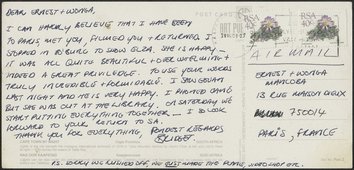 DEAR ERNEST + WONGA,
I CAN HARDLY BELIEVE THAT I HAVE BEEN
TO PARIS, MET YOU, FILMED YOU + RETURNED. I
STOPPED IN BERLIN TO SHOW ELZA. SHE IS HAPPY —
IT WAS ALL QUITE BEAUTIFUL + OVERWELMING +
INDEED A GREAT PRIVILEDGE. TO USE YOUR WORDS
TRULY INCREDIBLE + FORMIDABLE. I SAW
LAST NIGHT AND HE IS VERY HAPPY. I PHONED
BUT SHE WAS OUT AT THE LIBRARY. ON SATURDAY WE
START PUTTING EVERYTHING TOGETHER — I LOOK
FORWARD TO YOUR RETURN TO SA.
THANK YOU FOR EVERYTHING, FONDEST REGARDS
BRIDGET.
P.S. SORRY WE RUSHED OFF, WE JUST MADE THE PLANE, VIDEO SHOP ETC.
POSTCARD
RSA
RSA
AIR MAIL
ERNEST + WONGA
MANCOBA
13 RUE MAISON DIEUX
75014
PARIS, FRANCE